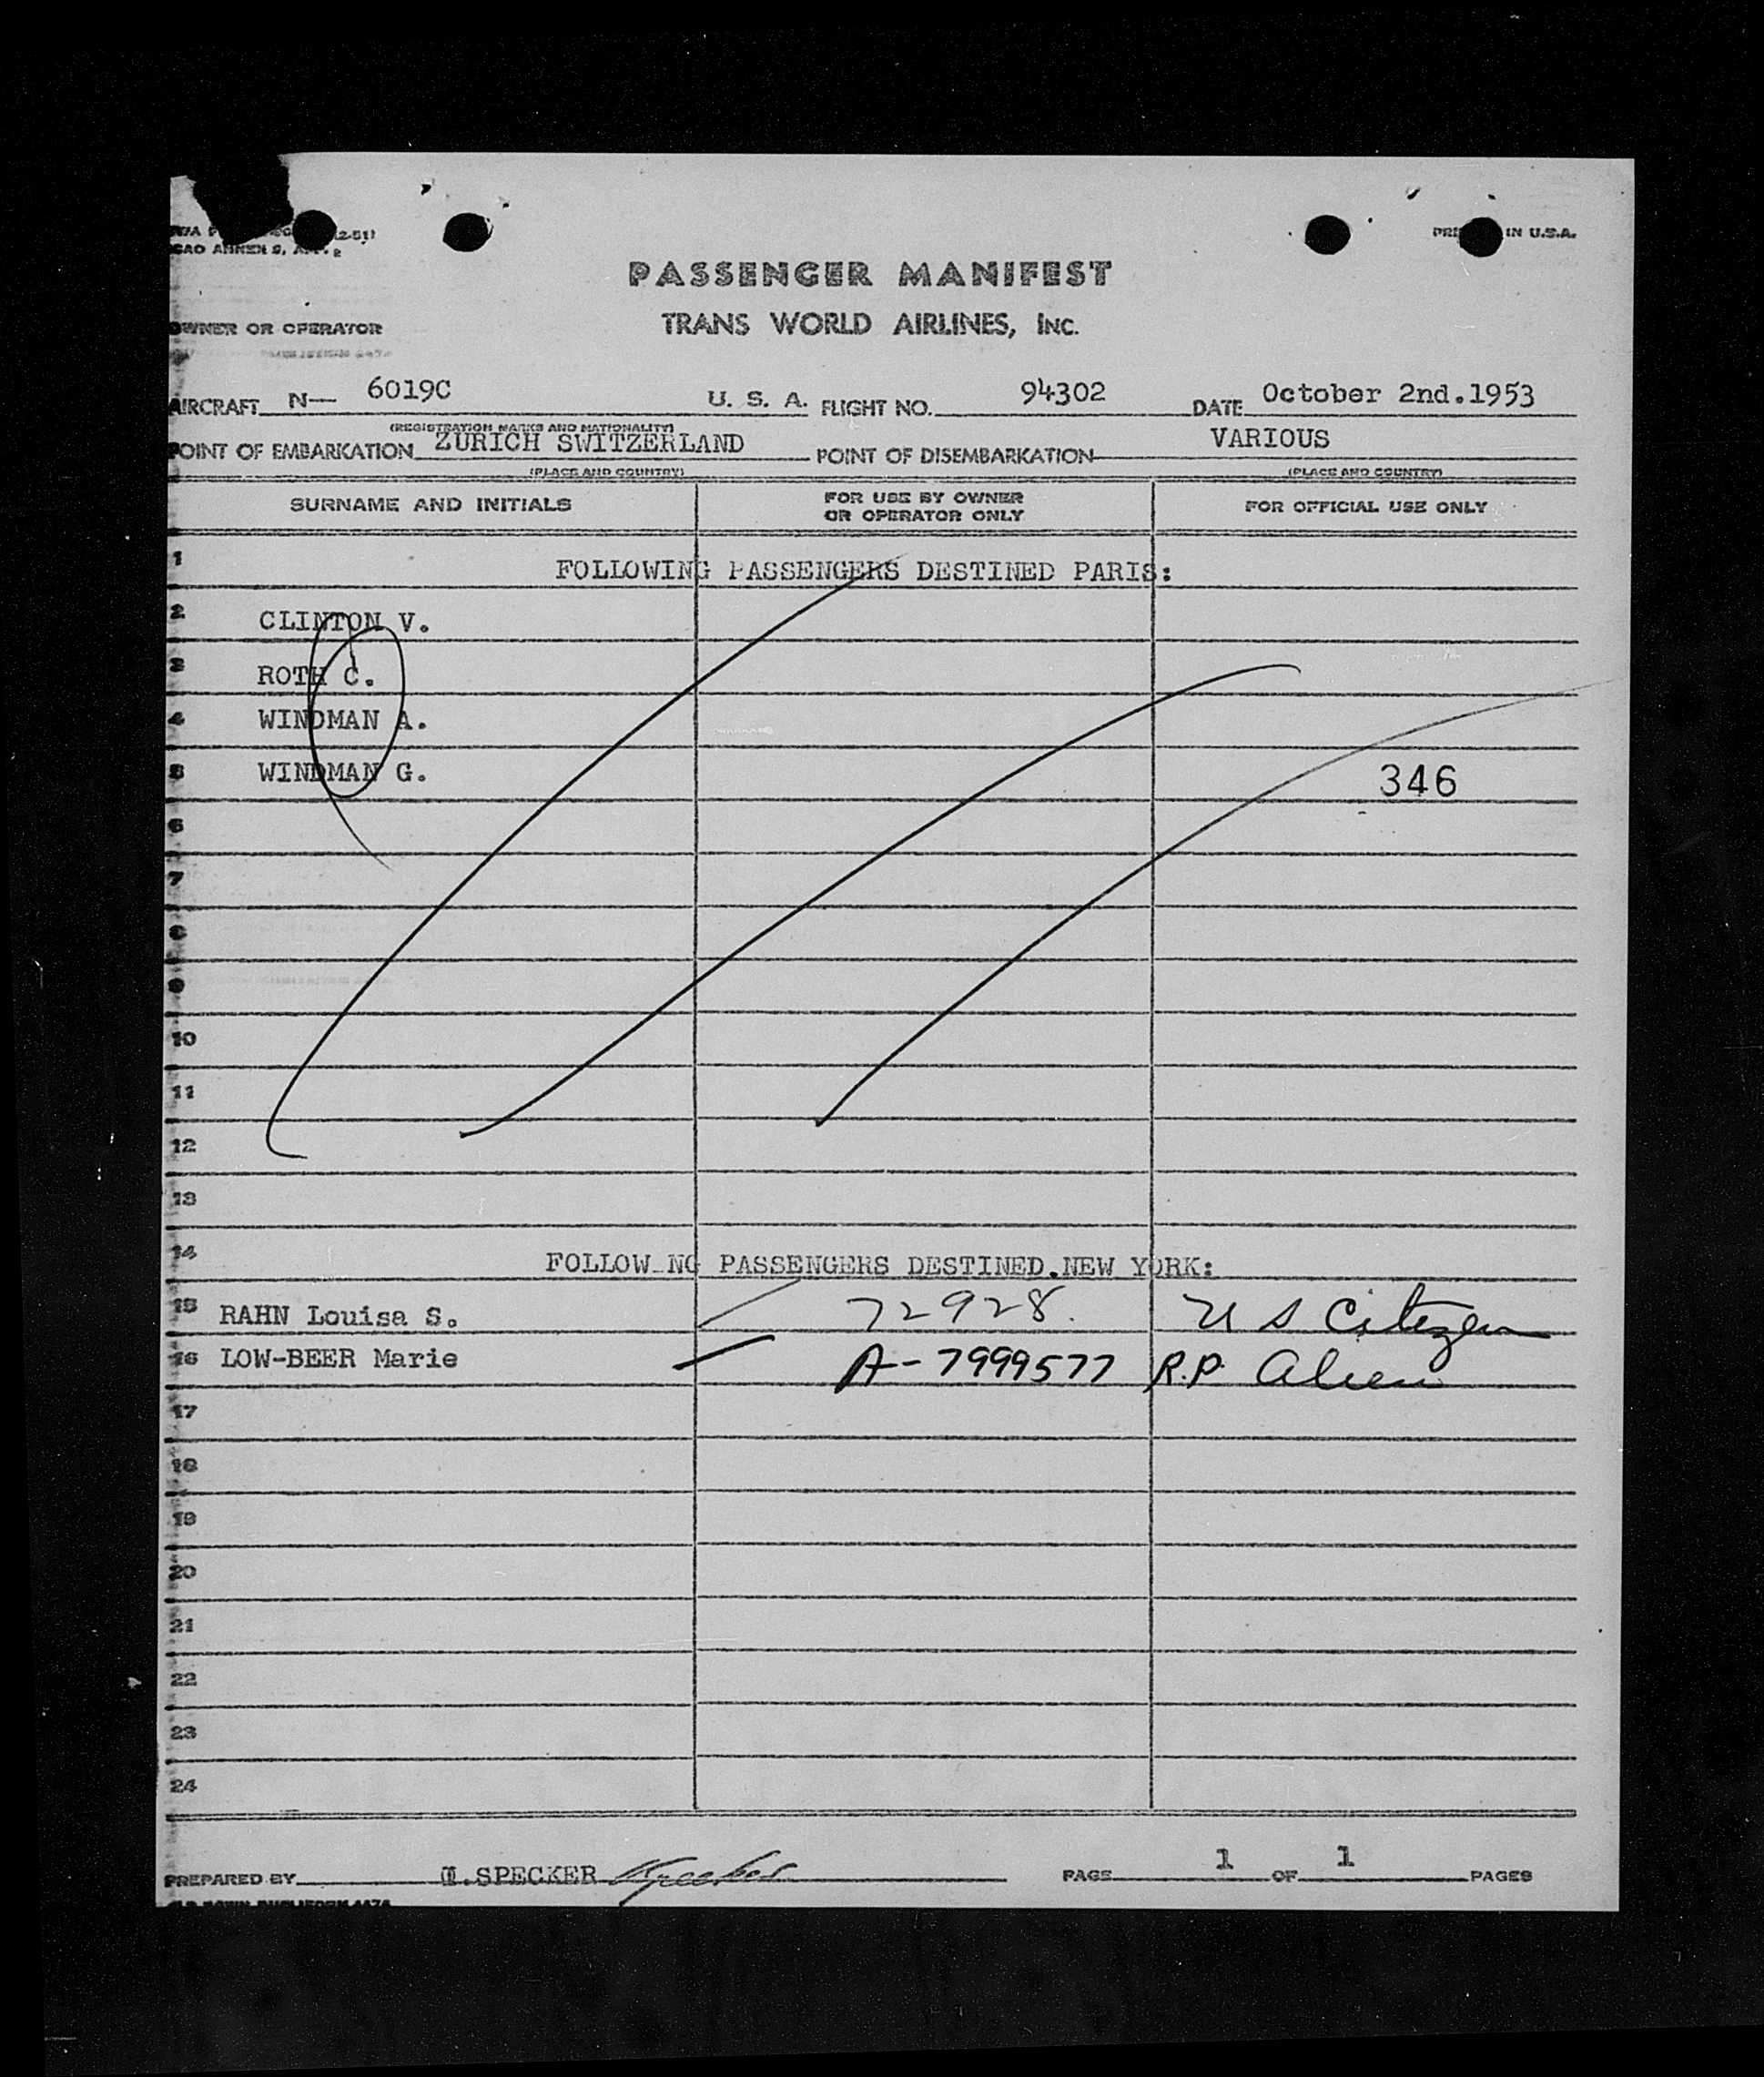 PRINTED IN U.S.A.
PASSENGER MANIFEST
OWNER OR OPERATOR
TRANS WORLD AIRLINES, INC.
AIRCRAFT N— 6019C U. S. A. FLIGHT NO. 94302 DATE October 2nd.1953
(REGISTRATION MARKS AND NATIONALITY)
POINT OF EMBARKATION ZURICH SWITZERLAND POINT OF DISEMBARKATION VARIOUS
(PLACE AND COUNTRY) (PLACE AND COUNTRY)
SURNAME AND INITIALS FOR USE BY OWNER OR OPERATOR ONLY FOR OFFICIAL USE ONLY
1 FOLLOWING PASSENGERS DESTINED PARIS:
2 CLINTON V.
3 ROTH C.
4 WINDMAN A.
5 WINDMAN G. 346
6
7
8
9
10
11
12
13
14 FOLLOW NG PASSENGERS DESTINED.NEW YORK:
15 RAHN Louisa S. 72928. U S Citizen
16 LOW-BEER Marie A-7999577 R.P. Alien
17
18
19
20
21
22
23
24
PREPARED BY SPECKER Specker PAGE 1 OF 1 PAGES